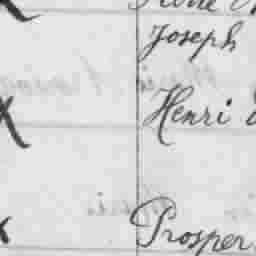 Joseph
Henri
Prosper